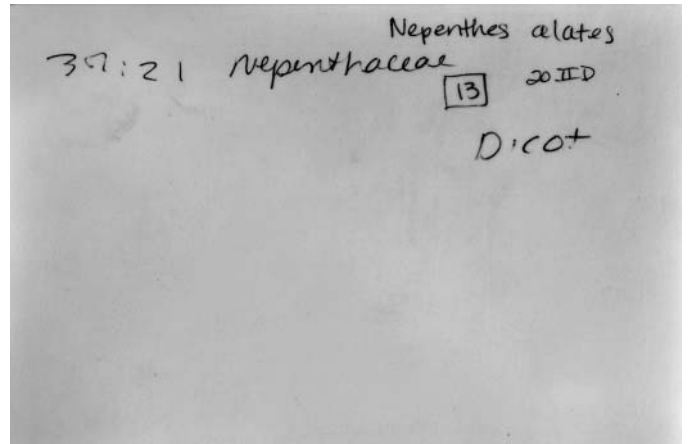 Nepenthes alates
37:21 Nepenthaceae
13 20 II D
Dicot